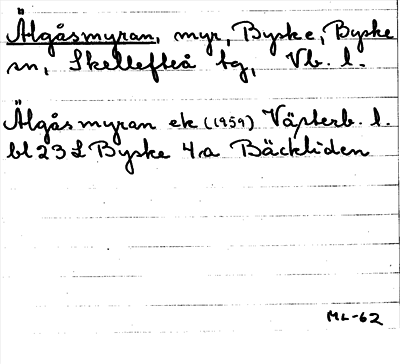 Älgåsmyran, myr, Byske, Byske
sn, Skellefteå tg, Vb. l.
Älgåsmyran ek (1959) Västerb. l.
bl 23 L Byske 4a Bäckliden
ML-62